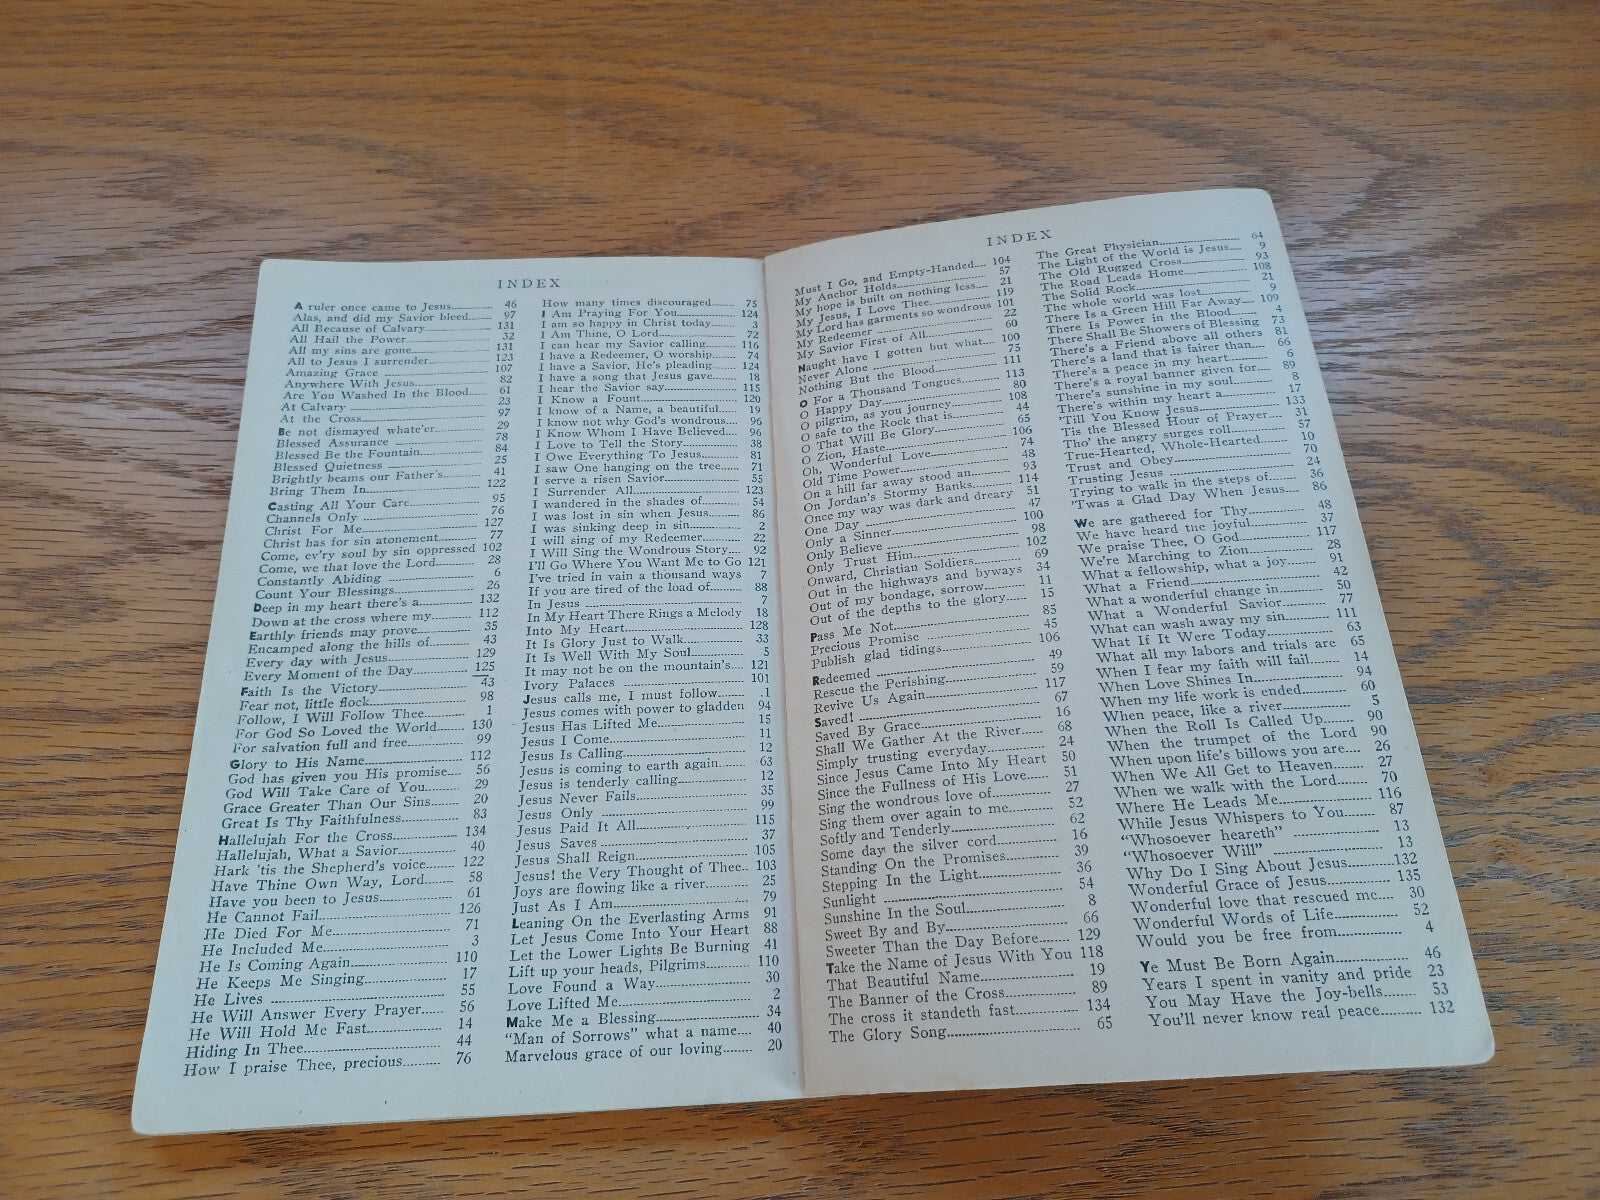 INDEX
A ruler once came to Jesus 46
Alas, and did my Savior bleed 97
All Because of Calvary 131
All Hail the Power 32
All my sins are gone 131
All to Jesus I surrender 123
Amazing Grace 107
Anywhere With Jesus 82
Are You Washed In the Blood 61
At Calvary 23
At the Cross 97
Be not dismayed whate'er 29
Blessed Assurance 78
Blessed Be the Fountain 84
Blessed Quietness 25
Brightly beams our Father's 41
Bring Them In 122
Casting All Your Care 95
Channels Only 76
Christ For Me 127
Christ has for sin atonement 77
Come, ev'ry soul by sin oppressed 102
Come, we that love the Lord 28
Constantly Abiding 6
Count Your Blessings 26
Deep in my heart there's a 132
Down at the cross where my 112
Earthly friends may prove 35
Encamped along the hills of 43
Every day with Jesus 129
Every Moment of the Day 125
Faith Is the Victory 43
Fear not, little flock 98
Follow, I Will Follow Thee 1
For God So Loved the World 130
For salvation full and free 99
Glory to His Name 112
God has given you His promise 56
God Will Take Care of You 29
Grace Greater Than Our Sins 20
Great Is Thy Faithfulness 83
Hallelujah For the Cross 134
Hallelujah, What a Savior 40
Hark 'tis the Shepherd's voice 122
Have Thine Own Way, Lord 58
Have you been to Jesus 61
He Cannot Fail 126
He Died For Me 71
He Included Me 3
He Is Coming Again 110
He Keeps Me Singing 17
He Lives 55
He Will Answer Every Prayer 56
He Will Hold Me Fast 14
Hiding In Thee 44
How I praise Thee, precious 76
How many times discouraged 75
I Am Praying For You 124
I am so happy in Christ today 3
I Am Thine, O Lord 72
I can hear my Savior calling 116
I have a Redeemer, O worship 74
I have a Savior, He's pleading 124
I have a song that Jesus gave 18
I hear the Savior say 115
I Know a Fount 120
I know of a Name, a beautiful 19
I know not why God's wondrous 96
I Know Whom I Have Believed 96
I Love to Tell the Story 38
I Owe Everything To Jesus 81
I saw One hanging on the tree 71
I serve a risen Savior 55
I Surrender All 123
I wandered in the shades of 54
I was lost in sin when Jesus 86
I was sinking deep in sin 2
I will sing of my Redeemer 22
I Will Sing the Wondrous Story 92
I'll Go Where You Want Me to Go 121
I've tried in vain a thousand ways 7
If you are tired of the load of 88
In Jesus 7
In My Heart There Rings a Melody 18
Into My Heart 128
It Is Glory Just to Walk 33
It Is Well With My Soul 5
It may not be on the mountain's 121
Ivory Palaces 101
Jesus calls me, I must follow .1
Jesus comes with power to gladden 94
Jesus Has Lifted Me 15
Jesus I Come 11
Jesus Is Calling 12
Jesus is coming to earth again 63
Jesus is tenderly calling 12
Jesus Never Fails 35
Jesus Only 99
Jesus Paid It All 115
Jesus Saves 37
Jesus Shall Reign 105
Jesus! the Very Thought of Thee 103
Joys are flowing like a river 25
Just As I Am 79
Leaning On the Everlasting Arms 91
Let Jesus Come Into Your Heart 88
Let the Lower Lights Be Burning 41
Lift up your heads, Pilgrims 110
Love Found a Way 30
Love Lifted Me 2
Make Me a Blessing 34
"Man of Sorrows" what a name 40
Marvelous grace of our loving 20
INDEX
Must I Go, and Empty-Handed 104
My Anchor Holds 57
My hope is built on nothing less 21
My Jesus, I Love Thee 119
My Lord has garments so wondrous 101
My Redeemer 22
My Savior First of All 60
Naught have I gotten but what 100
Never Alone 75
Nothing But the Blood 111
O For a Thousand Tongues 113
O Happy Day 80
O pilgrim, as you journey 108
O safe to the Rock that is 44
O That Will Be Glory 65
O Zion, Haste 106
Oh, Wonderful Love 74
Old Time Power 48
On a hill far away stood an 93
On Jordan's Stormy Banks 114
Once my way was dark and dreary 51
One Day 47
Only a Sinner 100
Only Believe 98
Only Trust Him 102
Onward, Christian Soldiers 69
Out in the highways and byways 34
Out of my bondage, sorrow 11
Out of the depths to the glory 15
Pass Me Not 85
Precious Promise 45
Publish glad tidings 106
Redeemed 49
Rescue the Perishing 59
Revive Us Again 117
Saved! 67
Saved By Grace 16
Shall We Gather At the River 68
Simply trusting everyday 24
Since Jesus Came Into My Heart 50
Since the Fullness of His Love 51
Sing the wondrous love of 27
Sing them over again to me 52
Softly and Tenderly 62
Some day the silver cord 16
Standing On the Promises 39
Stepping In the Light 36
Sunlight 54
Sunshine In the Soul 8
Sweet By and By 66
Sweeter Than the Day Before 129
Take the Name of Jesus With You 118
That Beautiful Name 19
The Banner of the Cross 89
The cross it standeth fast 134
The Glory Song 65
The Great Physician 64
The Light of the World is Jesus 9
The Old Rugged Cross 93
The Road Leads Home 108
The Solid Rock 21
The whole world was lost 9
There Is a Green Hill Far Away 109
There Is Power in the Blood 4
There Shall Be Showers of Blessing 73
There's a Friend above all others 81
There's a land that is fairer than 66
There's a peace in my heart 6
There's a royal banner given for 89
There's sunshine in my soul 8
There's within my heart a 17
'Till You Know Jesus 133
'Tis the Blessed Hour of Prayer 31
Tho' the angry surges roll 57
True-Hearted, Whole-Hearted 10
Trust and Obey 70
Trusting Jesus 24
Trying to walk in the steps of 36
'Twas a Glad Day When Jesus 86
We are gathered for Thy 48
We have heard the joyful 37
We praise Thee, O God 117
We're Marching to Zion 28
What a fellowship, what a joy 91
What a Friend 42
What a wonderful change in 50
What a Wonderful Savior 77
What can wash away my sin 111
What If It Were Today 63
What all my labors and trials are 65
When I fear my faith will fail 14
When Love Shines In 94
When my life work is ended 60
When peace, like a river 5
When the Roll Is Called Up 90
When the trumpet of the Lord 90
When upon life's billows you are 26
When We All Get to Heaven 27
When we walk with the Lord 70
Where He Leads Me 116
While Jesus Whispers to You 87
"Whosoever heareth" 13
"Whosoever Will" 13
Why Do I Sing About Jesus 132
Wonderful Grace of Jesus 135
Wonderful love that rescued me 30
Wonderful Words of Life 52
Would you be free from 4
Ye Must Be Born Again 46
Years I spent in vanity and pride 23
You May Have the Joy-bells 53
You'll never know real peace 132